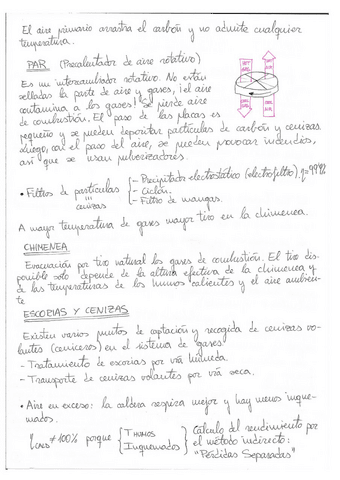 El aire primario arrastra el carbón y no admite cualquier
temperatura.
PAR (Precalentador de aire rotativo)
Es un intercambiador rotativo. No están
selladas la parte de aire y gases, ¡el aire
contamina a los gases! Se pierde aire
de combustión. El paso de las placas es
pequeño y se pueden depositar partículas de carbón y cenizas.
Luego, con el paso del aire, se pueden provocar incendios,
así que se usan pulverizadores.
• Filtros de partículas
=
cenizas
- Precipitador electrostático (electrofiltro), η=99%
- Ciclón.
- Filtro de mangas.
A mayor temperatura de gases mayor tiro en la chimenea.
CHIMENEA
Evacuación por tiro natural los gases de combustión. El tiro dis-
ponible solo depende de la altura efectiva de la chimenea y
de las temperaturas de los humos calientes y el aire ambien-
te.
ESCORIAS Y CENIZAS
Existen varios puntos de captación y recogida de cenizas vo-
lantes (ceniceros) en el sistema de gases:
- Tratamiento de escorias por vía húmeda.
- Transporte de cenizas volantes por vía seca.
• Aire en exceso: la caldera respira mejor y hay menos inque-
mados.
≠ 100% porque
T HUMOS
Inquemados
Cálculo del rendimiento por
el método indirecto:
"Pérdidas Separadas"